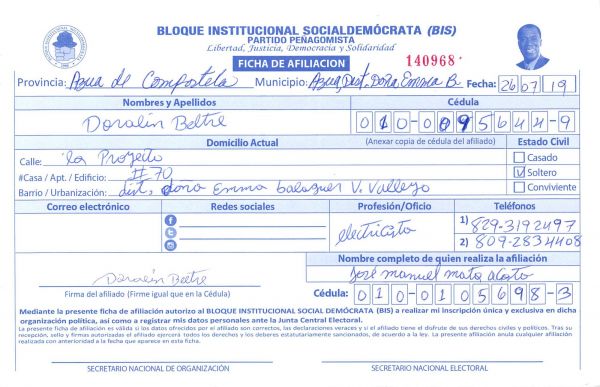 BLOQUE INSTITUCIONAL SOCIALDEMÓCRATA (BIS)
PARTIDO PEÑAGOMISTA
Libertad, Justicia, Democracia y Solidaridad
FICHA DE AFILIACION
140968
Provincia: Azua de Compostela Municipio: Azua, Dist. Doña Emma B. Fecha: 26 07 19
Nombres y Apellidos Cédula
Doralin Beltre 010-0095644-9
Domicilio Actual (Anexar copia de cédula del afiliado) Estado Civil
Calle: la Proyecto Casado
#Casa / Apt. / Edificio: #70 Soltero
Barrio / Urbanización: dist, doña Emma balaguer V. Vallejo Conviviente
Correo electrónico Redes sociales Profesión/Oficio Teléfonos
electricista 1) 829-3192497
2) 809-2834408
Nombre completo de quien realiza la afiliación
José manuel mata acosta
Doralin Beltre
Firma del afiliado (Firme igual que en la Cédula) Cédula: 010-0105698-3
Mediante la presente ficha de afiliación autorizo al BLOQUE INSTITUCIONAL SOCIAL DEMÓCRATA (BIS) a realizar mi inscripción única y exclusiva en dicha
organización política, así como a registrar mis datos personales ante la Junta Central Electoral.
La presente ficha de afiliación es válida si los datos ofrecidos por el afiliado son correctos, las declaraciones veraces y si el afiliado tiene el disfrute de sus derechos civiles y políticos. Tras su
recepción, sello y firmas autorizadas el afiliado ejercerá todos los derechos y los deberes estatutariamente sancionados, de acuerdo a la ley. La presente afiliación anula cualquier afiliación
realizada con anterioridad a la fecha que aparece en esta ficha.
SECRETARIO NACIONAL DE ORGANIZACIÓN SECRETARIO NACIONAL ELECTORAL